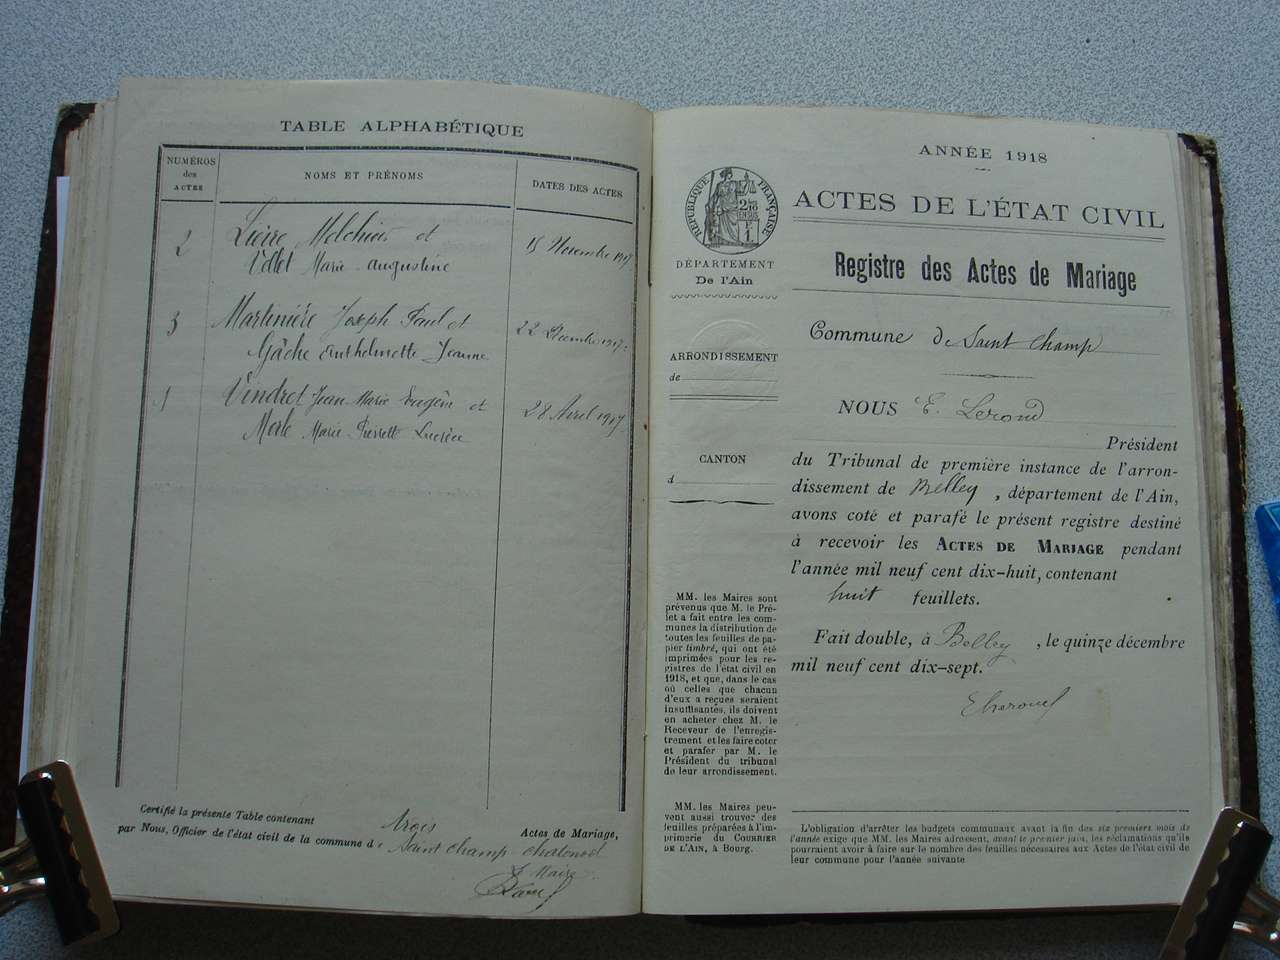 TABLE ALPHABÉTIQUE
NUMÉROS
des
ACTES
NOMS ET PRÉNOMS
DATES DES ACTES
2 Lierre Melchior et 15 Novembre 1917
Vollet Marie Augustine
3 Martinière Joseph Paul et 22 Décembre 1917
Gâche Anthelmette Jeanne
1 Vindret Jean Marie Eugène et 28 Avril 1917
Merle Marie Pierrette Lucrèce
Certifié la présente Table contenant trois Actes de Mariage,
par Nous, Officier de l'état civil de la commune de Saint Champ Chatonod
Le Maire
ANNÉE 1918
RÉPUBLIQUE FRANÇAISE
2/10 EN SUS
F
1
DÉPARTEMENT
De l'Ain
ARRONDISSEMENT
de
CANTON
d
MM. les Maires sont
prévenus que M. le Pré-
fet a fait entre les com-
munes la distribution de
toutes les feuilles de pa-
pier timbré, qui ont été
imprimées pour les re-
gistres de l'état civil en
1918, et que, dans le cas
où celles que chacun
d'eux a reçues seraient
insuffisantes, ils doivent
en acheter chez M. le
Receveur de l'enregis-
trement et les faire coter
et parafer par M. le
Président du tribunal
de leur arrondissement.
MM. les Maires peu-
vent aussi trouver des
feuilles préparées à l'im-
primerie du COURRIER
DE L'AIN, à Bourg.
ACTES DE L'ÉTAT CIVIL
Registre des Actes de Mariage
Commune de Saint Champ
NOUS E.
Président
du Tribunal de première instance de l'arron-
dissement de Belley, département de l'Ain,
avons coté et parafé le présent registre destiné
à recevoir les ACTES DE MARIAGE pendant
l'année mil neuf cent dix-huit, contenant
huit feuillets.
Fait double, à Belley, le quinze décembre
mil neuf cent dix-sept.
L'obligation d'arrêter les budgets communaux avant la fin des six premiers mois de
l'année exige que MM. les Maires adressent, avant le premier juin, les réclamations qu'ils
pourraient avoir à faire sur le nombre des feuilles nécessaires aux Actes de l'état civil de
leur commune pour l'année suivante